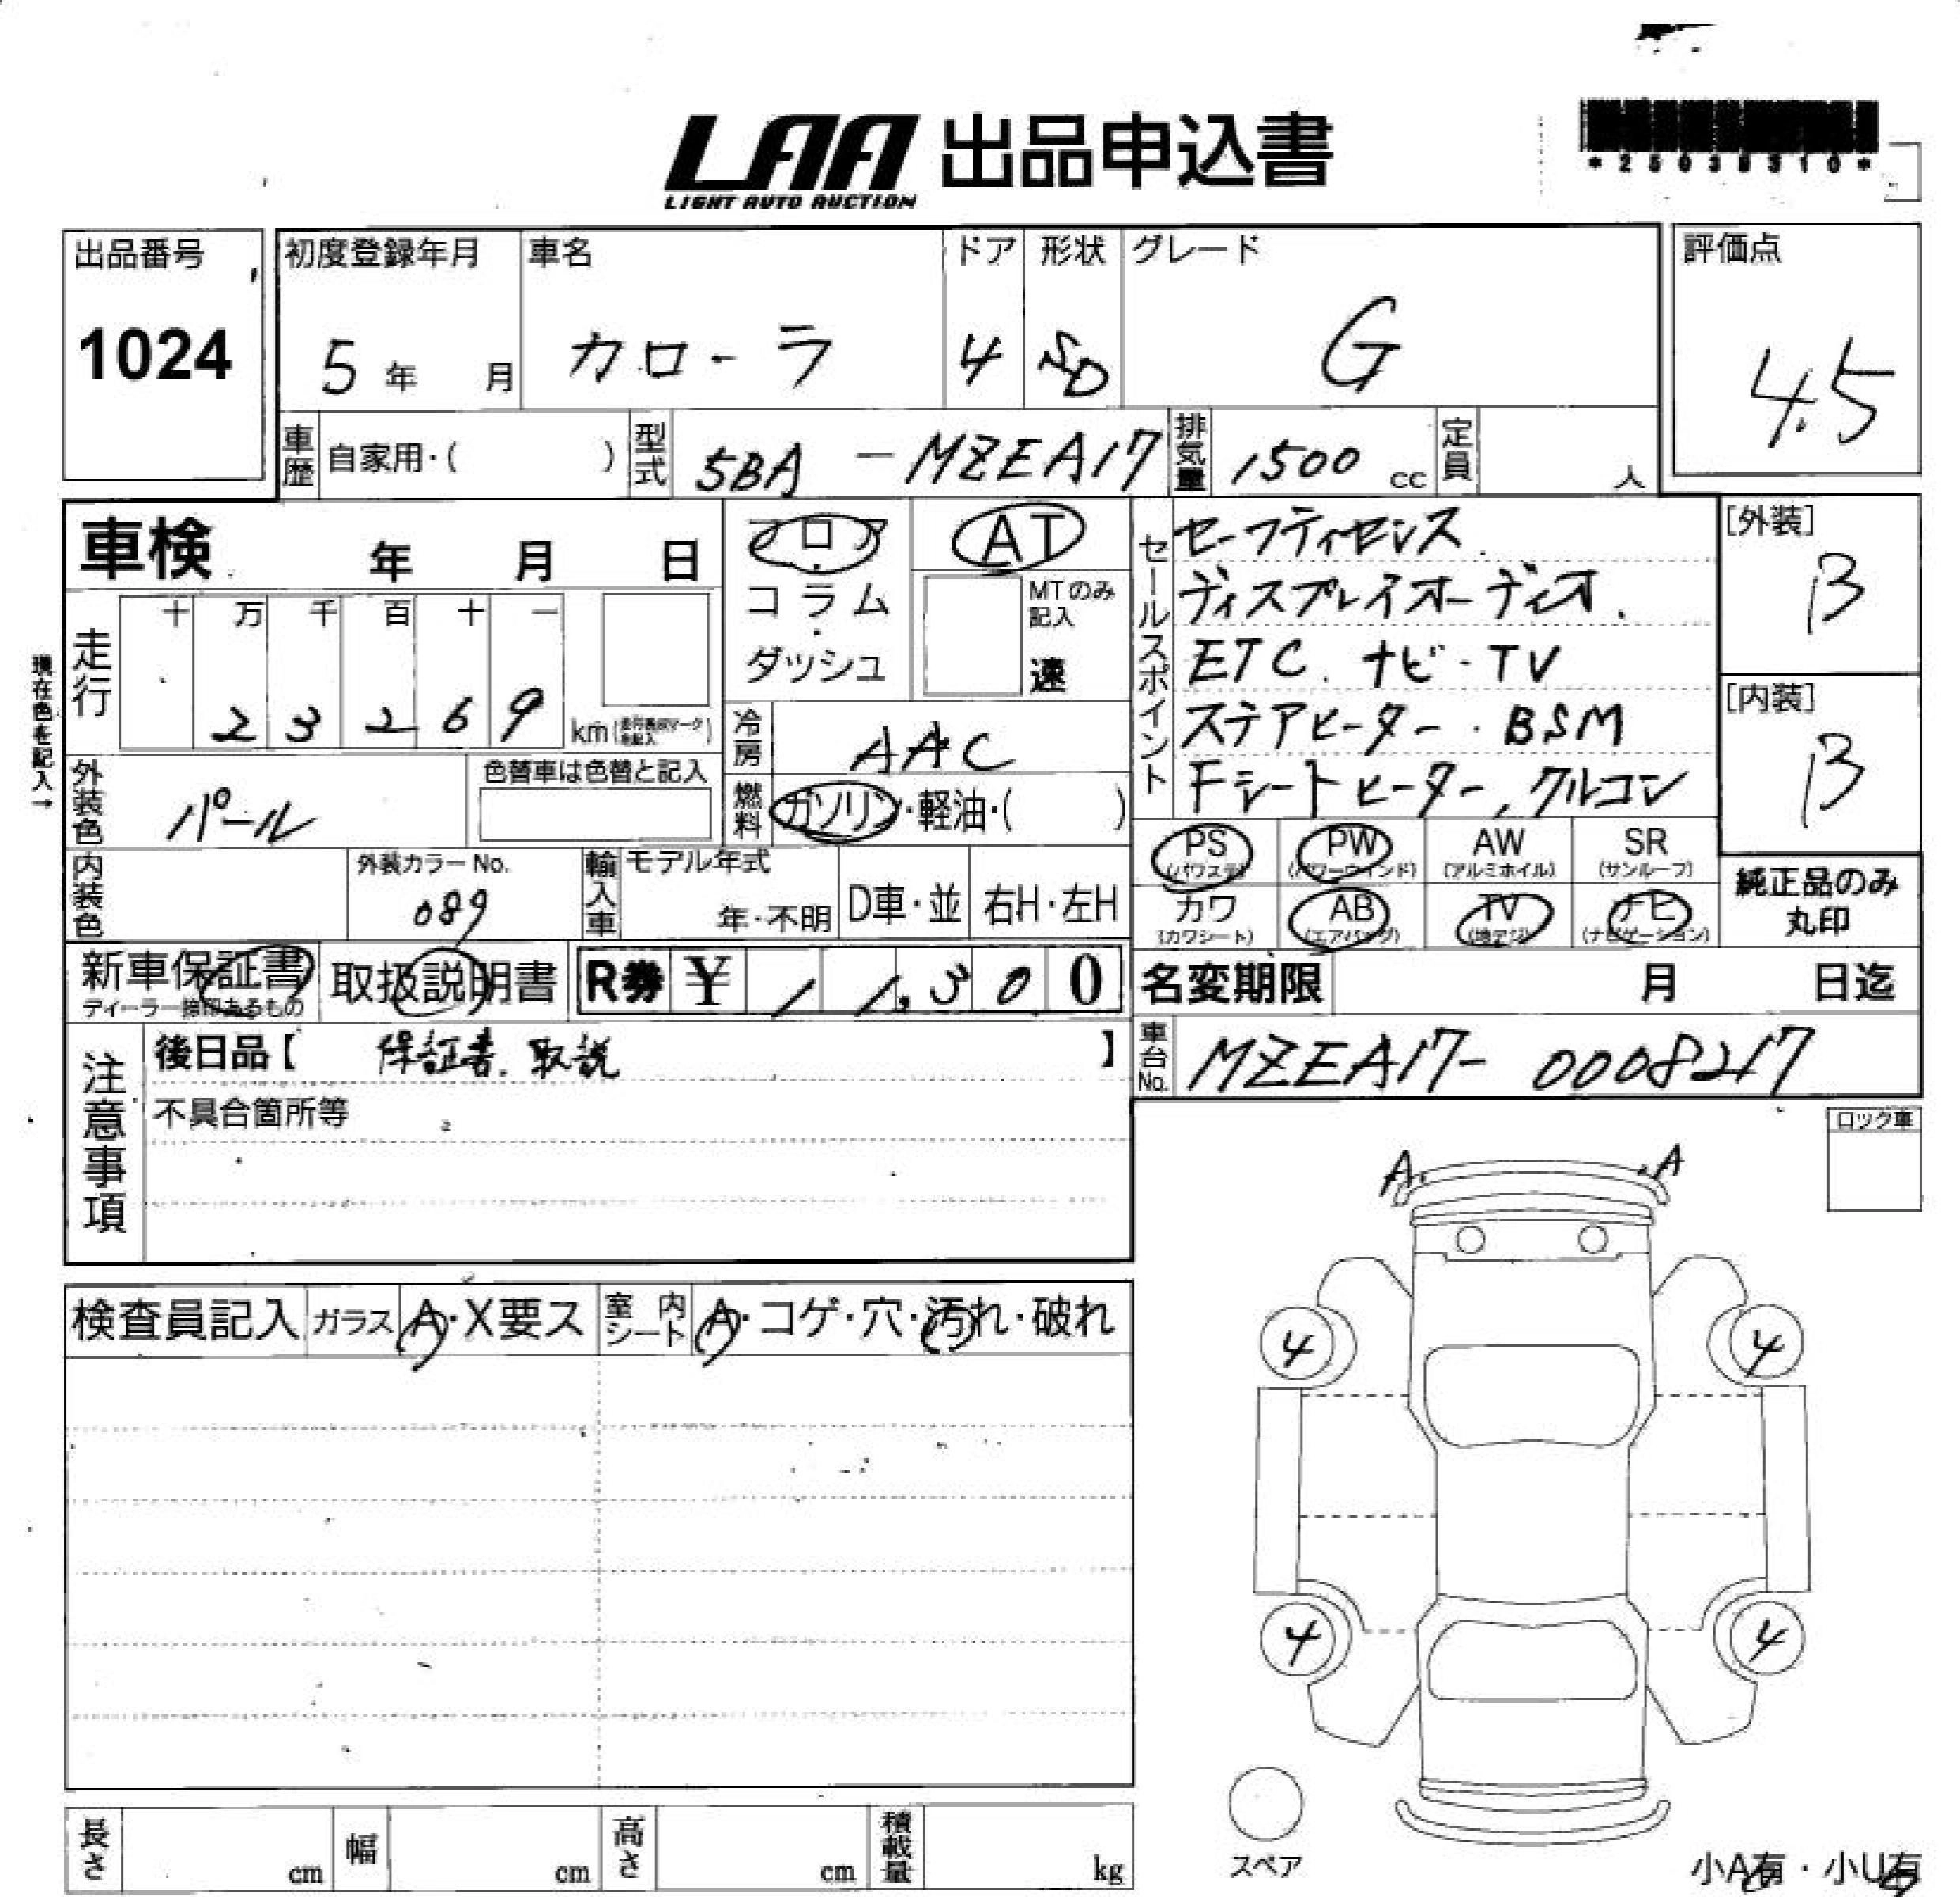 LAA 出品申込書
LIGHT AUTO AUCTION
出品番号 初度登録年月 車名 ドア 形状 グレード 評価点
1024 5年 月 カローラ 4 SD G 4.5
車歴 自家用・( ) 型式 5BA-MZEA17 排気量 1500 cc 定員 人
車検 年 月 日
フロア・コラム・ダッシュ
AT
MTのみ記入 速
セールスポイント
セーフティセンス
ディスプレイオーディオ
ETC. ナビ・TV
ステアヒーター・BSM
Fシートヒーター, クルコン
[外装] B
[内装] B
現在色を記入→
走行 十 万 千 百 十 一
2 3 2 6 9 km
冷房 AAC
外装色 パール
色替車は色替と記入
燃料 ガソリン・軽油・( )
内装色 外装カラーNo. 089
輸入車 モデル年式 年・不明 D車・並 右H・左H
PS (パワステ) PW (パワーウインド) AW (アルミホイル) SR (サンルーフ)
カワ (カワシート) AB (エアバッグ) TV (地デジ) ナビ (ナビゲーション)
純正品のみ丸印
新車保証書 取扱説明書 R券 ¥ 1 1,500
ディーラー捺印あるもの
名変期限 月 日迄
注意事項
後日品【 保証書. 取説 】
不具合箇所等
車台No. MZEA17-0008217
ロック車
A A
検査員記入 ガラス A・X要ス 室内シート A・コゲ・穴・汚れ・破れ
4 4
4 4
スペア
長さ cm 幅 cm 高さ cm 積載量 kg
小A有・小U有